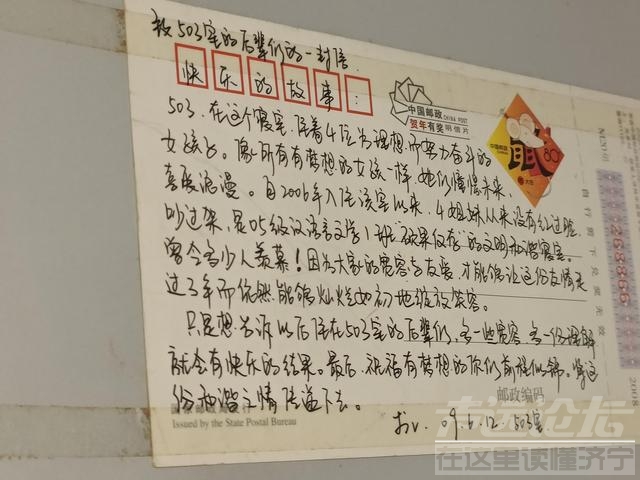 致503室的后辈们的一封信.
快乐的故事:
中国邮政
CHINA POST
贺年有奖明信片
中国邮政
80
503.在这个寝室,住着4位为理想而努力奋斗的
女孩子。像所有有梦想的女孩一样,她们憧憬未来
喜爱浪漫。自2006年入住该室以来,4姐妹从来没有红过脸
吵过架,是05级汉语言文学1班硕果仅存的文明和谐寝室。
曾令多少人羡慕!因为大家的宽容与友爱,才能够让这份友情走
过3年而依然能够灿烂如初地绽放笑容。
只是想告诉以后住在503室的后辈们,多一些宽容,多一份理解
就会有快乐的结果。最后,祝福有梦想的你们前程似锦。将这
份和谐之情传递下去。
09.6.12.503室
邮政编码
Issued by the State Postal Bureau
268866
2008
在这里读懂济宁